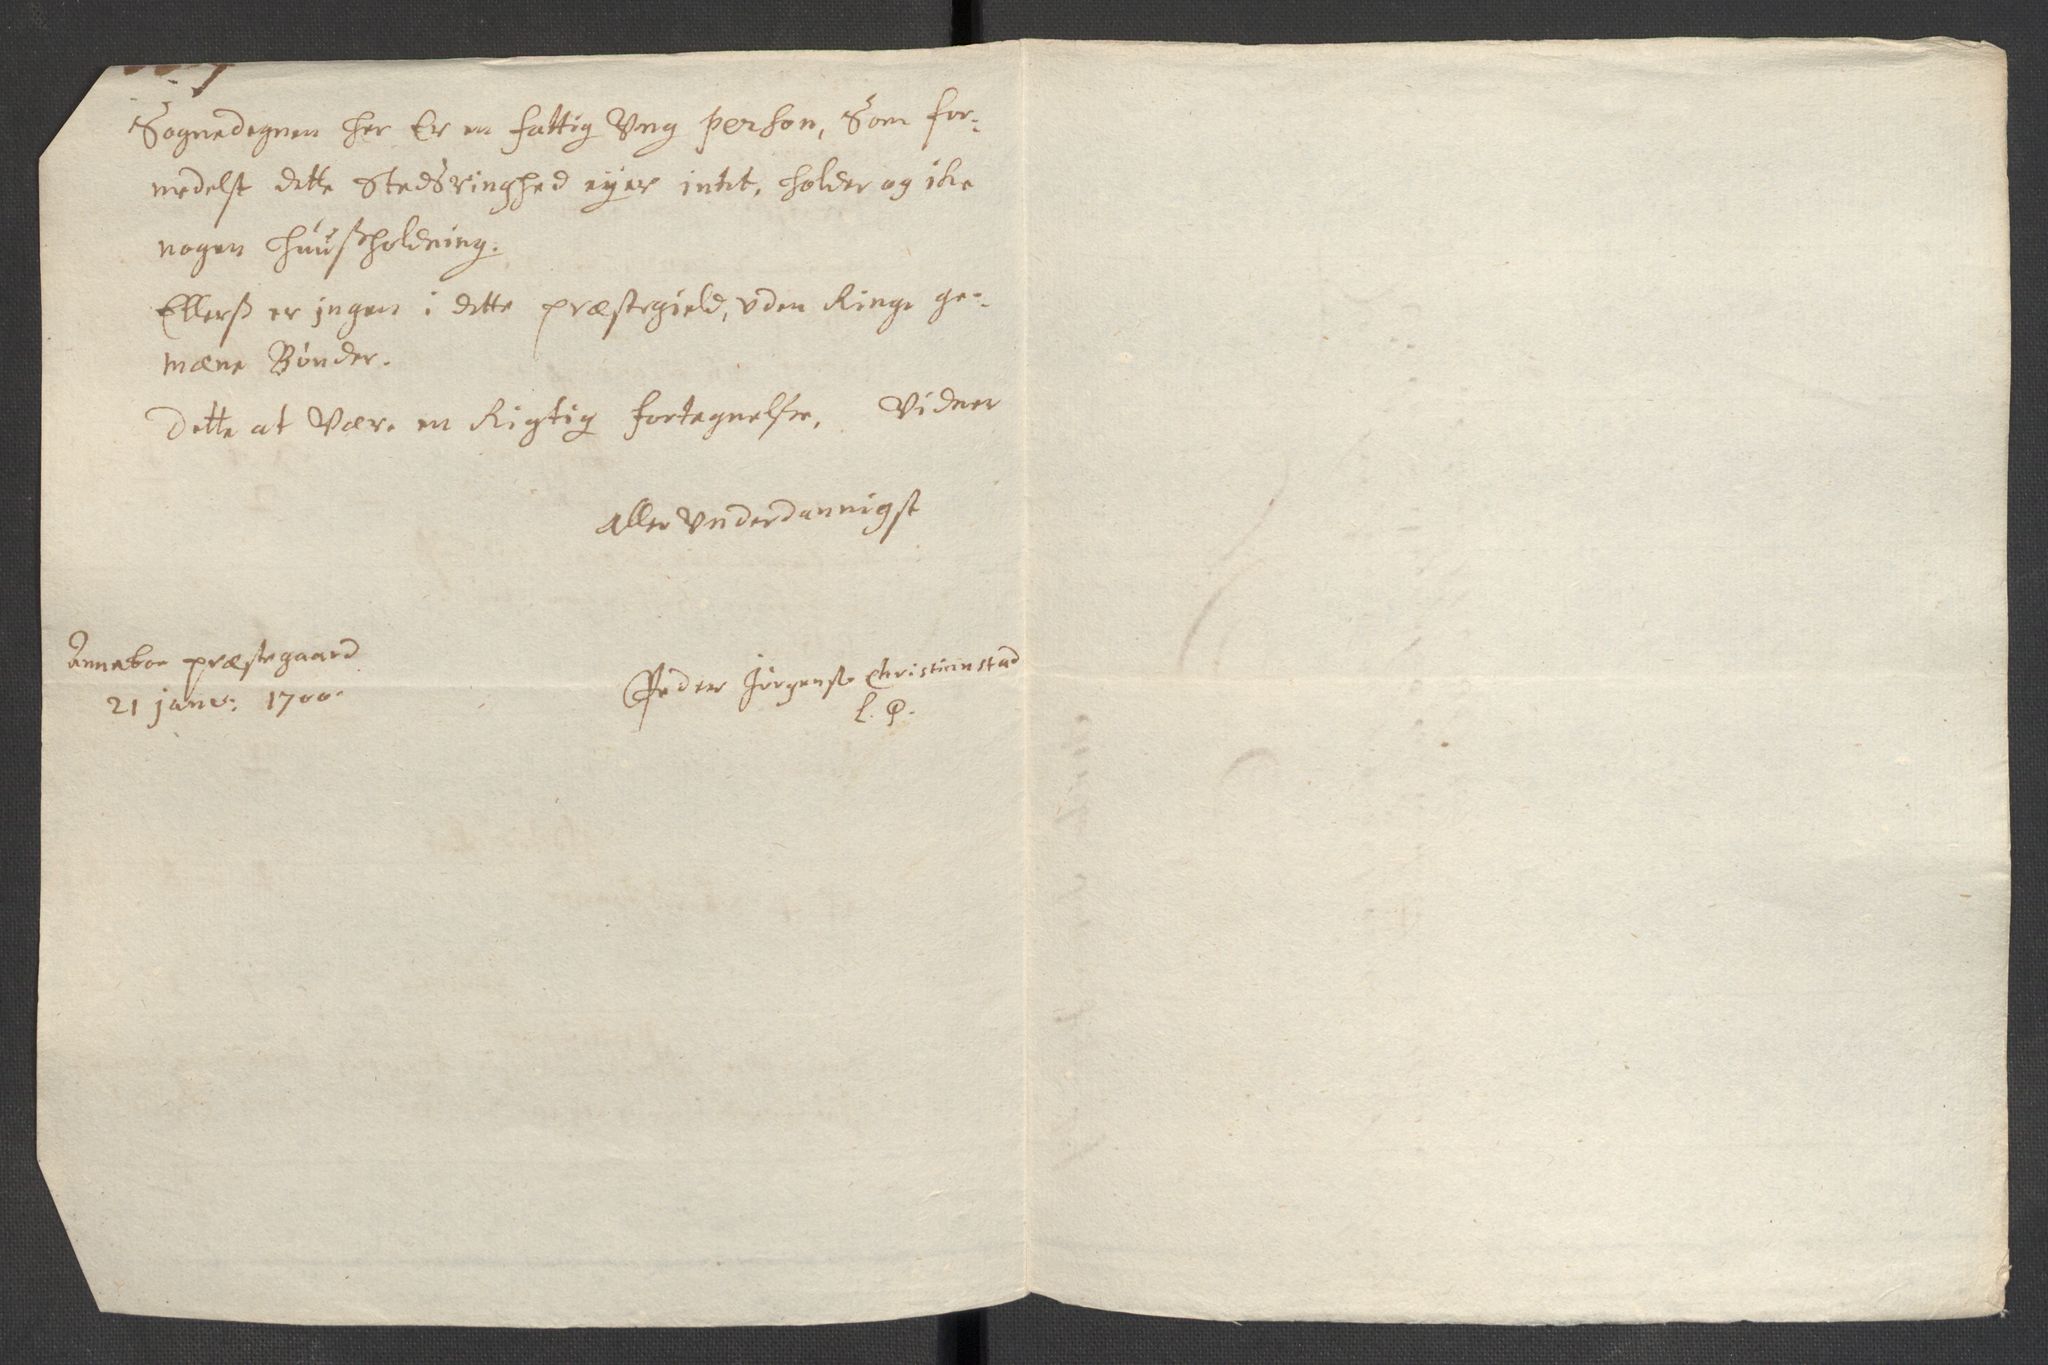 Sognedegnen her Er en fattig Vng person, Som for-
medelst dette Stedsringhed eyer intet, holder og iche
nogen huussholdning.
Ellerss er jngen i dette præstegield, vden Ringe ge-
mæne Bønder.
Dette at Være en Rigtig fortegnelse, Vidner
Aller Vnderdannigst
Anneboe præstegaard
21 janv: 1700.
Peder Jørgensø Christianstad
L. P.